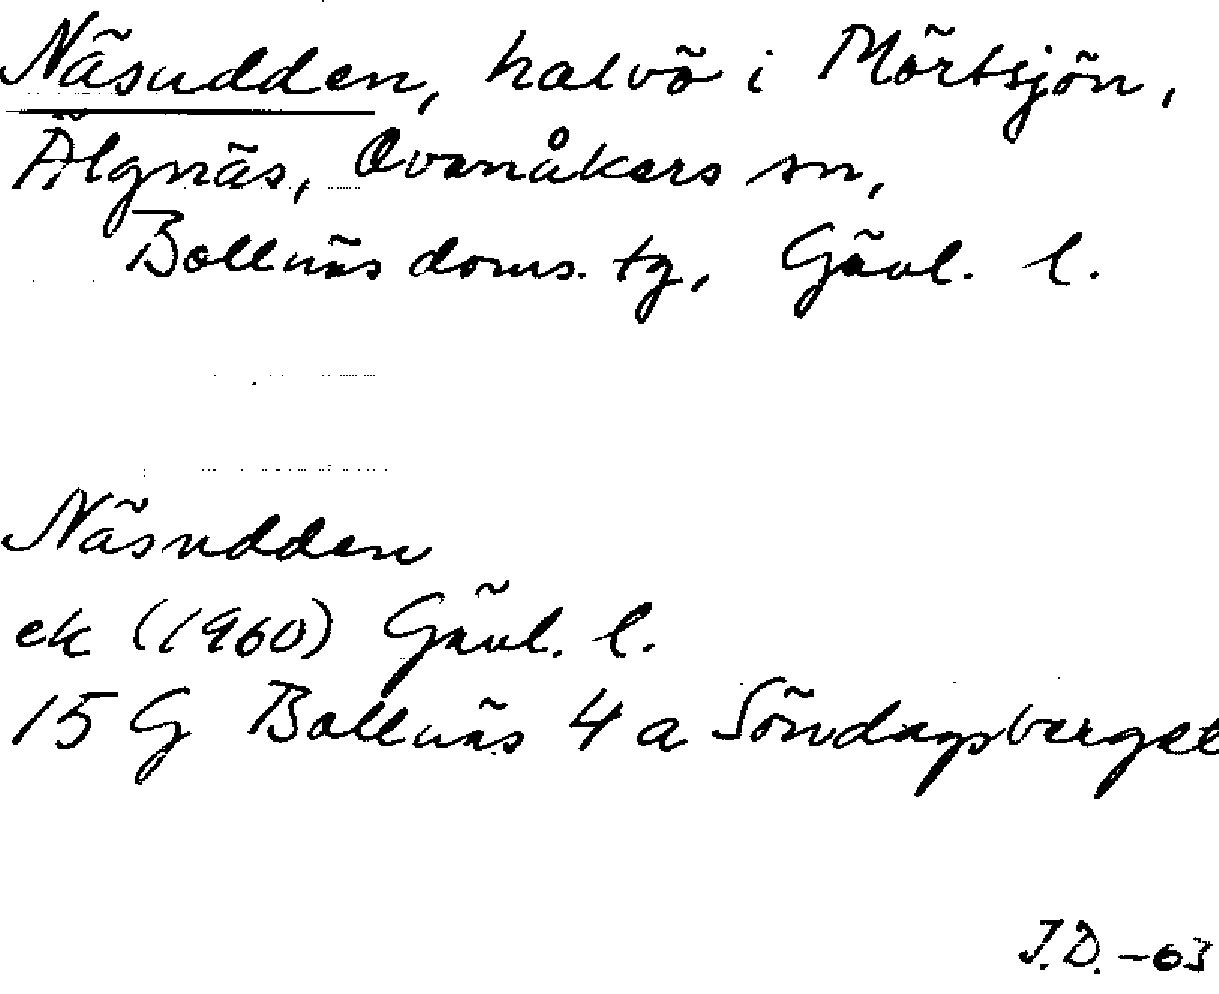 Näsudden, halvö i Mörtsjön,
Älgnäs, Ovanåkers sn,
Bollnäs doms. tg, Gävl. l.
Näsudden
ek (1960) Gävl. l.
15 G Bollnäs 4 a Söndagsberget
J.D. -63